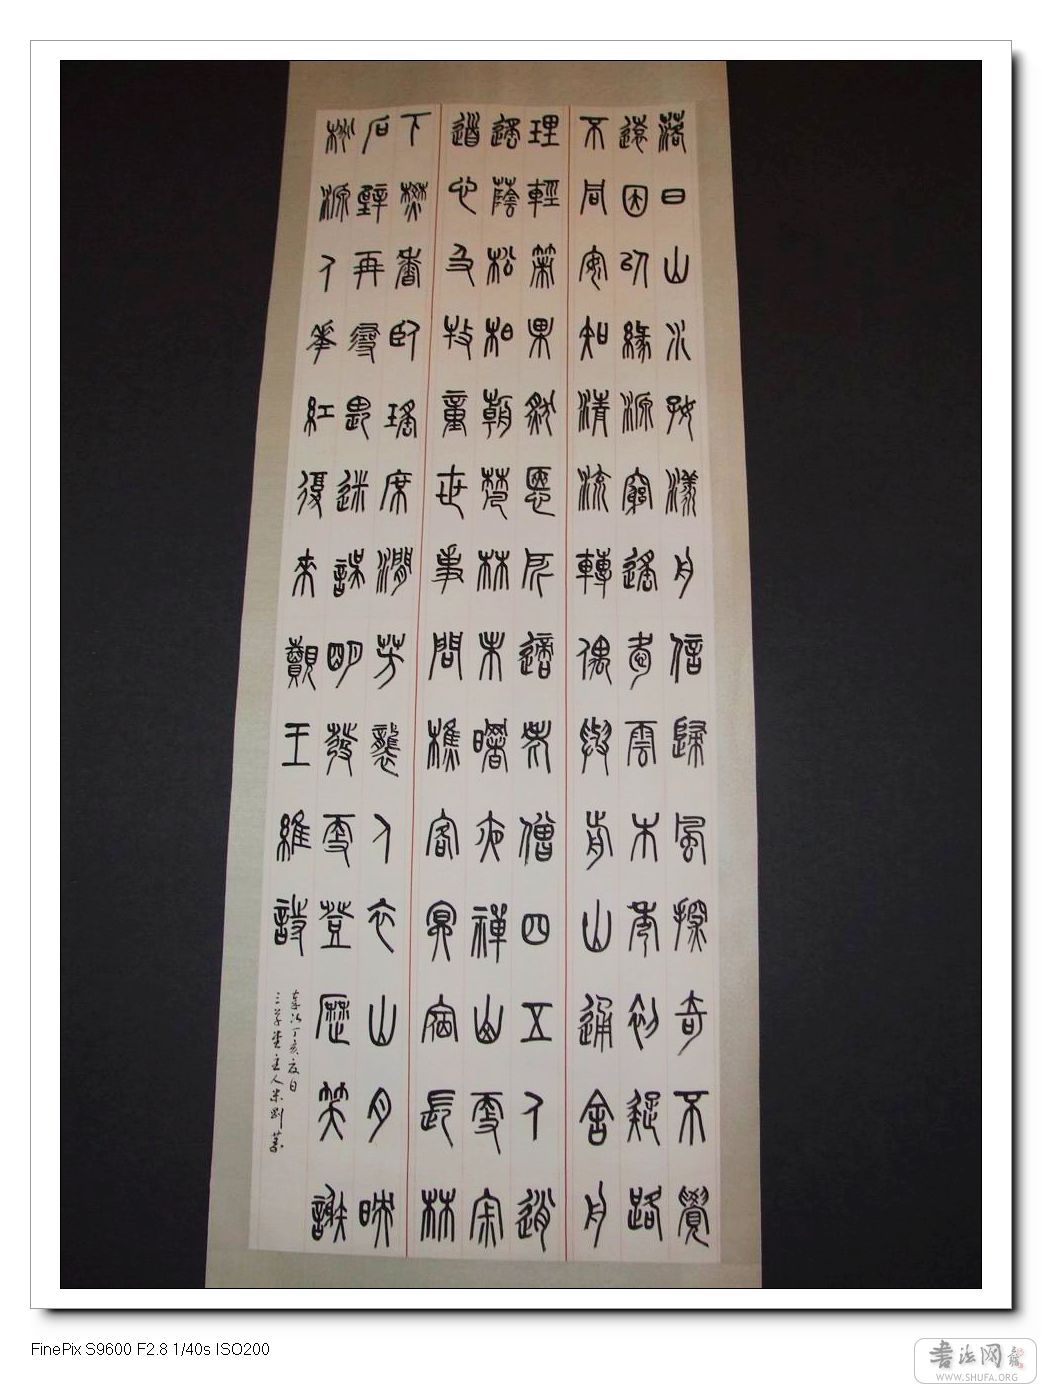 落日山水好漾舟信歸風探奇不覺
遠因以緣源窮遙愛雲木秀初疑路
不同安知清流轉偶與前山通舍舟
理輕策果然愜所適老僧四五人逍
遙蔭松柏朝梵林未曙夜禪山更寂
道心及牧童世事問樵客冥宿長林
下焚香臥瑤席澗芳襲人衣山月映
石壁再尋畏迷誤明發更登歷笑謝
桃源人華紅復來覿王維詩
丁亥夏日
堂主人
FinePix S9600 F2.8 1/40s ISO200
书法网
WWW.SHUFA.ORG